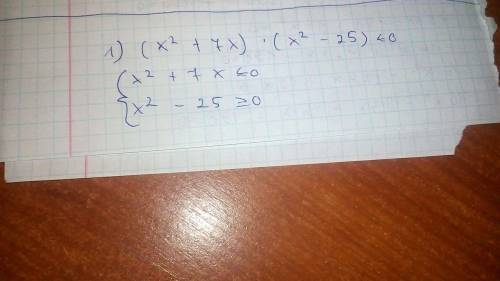 1) (x² + 7x) · (x² - 25) ≤ 0
{ x² + 7x ≤ 0
x² - 25 ≥ 0